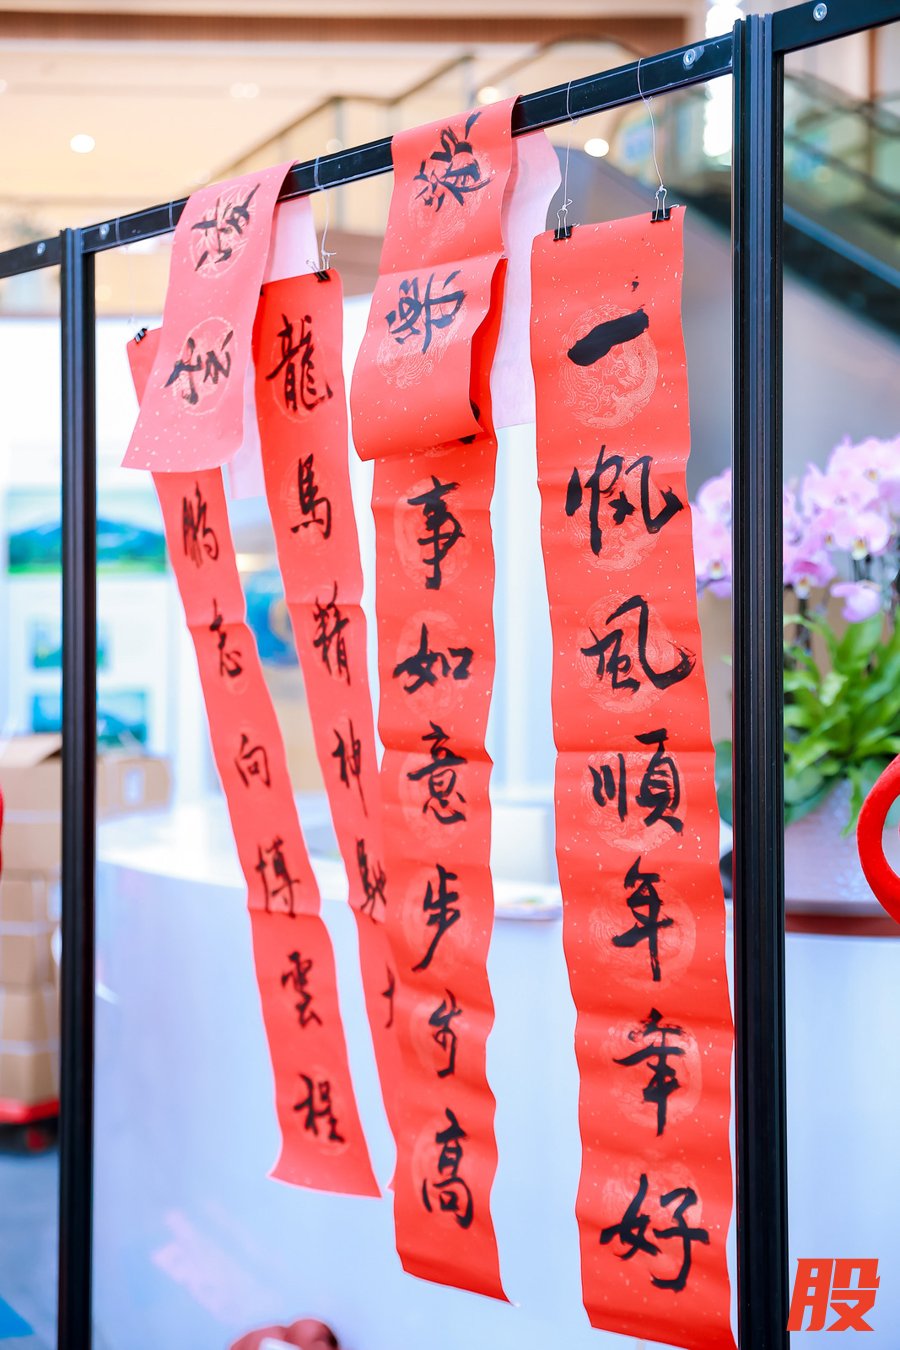 一帆風順年年好
事如意步步高
龍馬精神馳
鵬志向博雲程
股